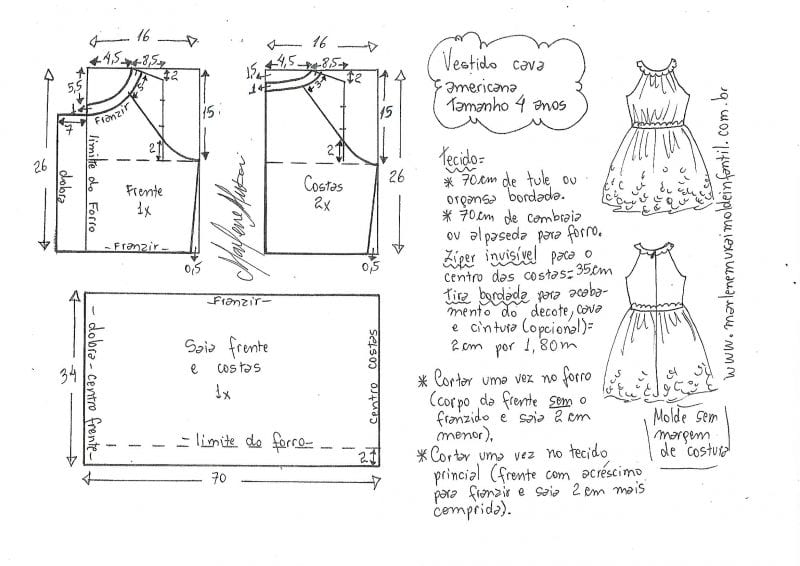 16
4,5 8,5
5,5
2
5
1
Franzir
7
15
26
2
dobra
limite do Forro
Frente
1x
- Franzir -
0,5
Marlene Mukai
16
4,5 8,5
1,5
1
2
3
15
2
26
Costas
2x
0,5
- Franzir -
34
- dobra - centro frente -
Saia frente
e costas
1x
centro costas
- limite do forro -
2
70
Vestido cava
americana
Tamanho 4 anos
Tecido=
* 70cm de tule ou
organsa bordada.
* 70cm de cambraia
ou alpaseda para forro.
Zíper invisível para o
centro das costas=35cm
Tira bordada para acaba-
mento do decote, cava
e cintura (opcional)=
2cm por 1,80m
* Cortar uma vez no forro
(corpo da frente sem o
franzido e saia 2 cm
menor).
* Cortar uma vez no tecido
princial (frente com acréscimo
para franzir e saia 2 cm mais
comprida).
Molde sem
margem
de costura
www.marlenemukaimoldeinfantil.com.br